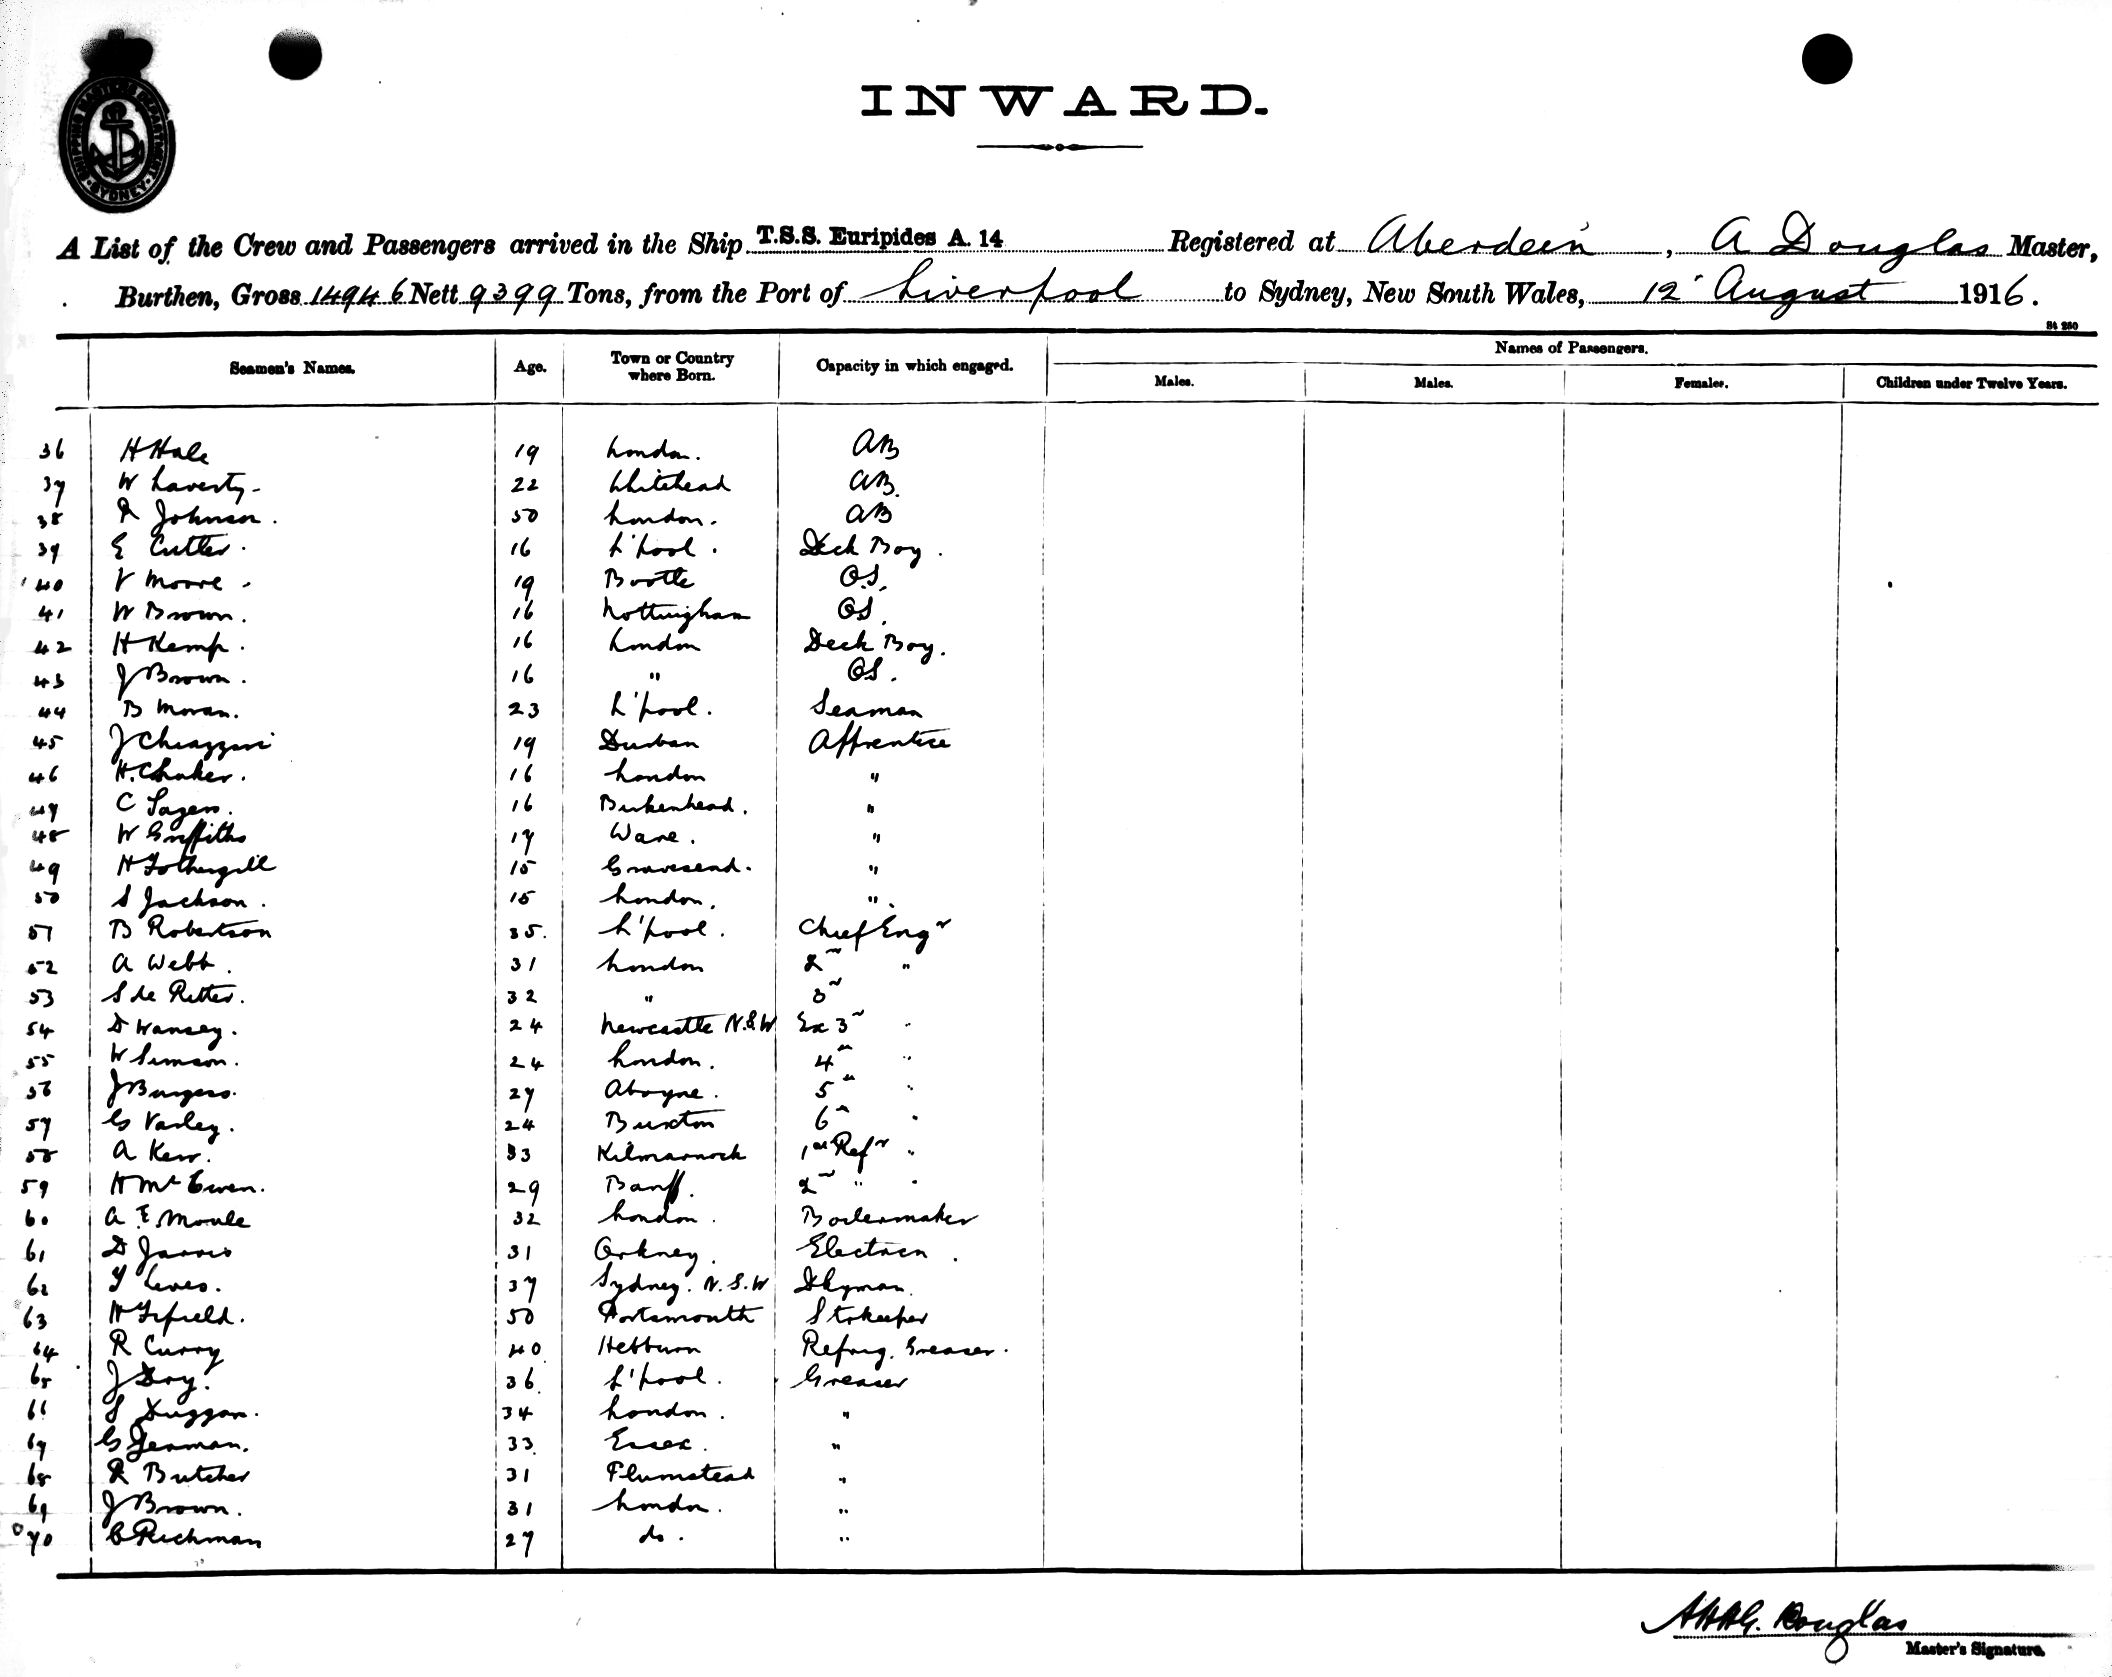 SHIPPING MASTERS DEPARTMENT SYDNEY
INWARD.
A List of the Crew and Passengers arrived in the Ship T.S.S. Euripides A. 14 Registered at Aberdeen, A Douglas Master,
Burthen, Gross 14946 Nett 9399 Tons, from the Port of Liverpool to Sydney, New South Wales, 12 August 1916.
St 260
Seamen's Names. Age. Town or Country where Born. Capacity in which engaged. Names of Passengers.
Males. Males. Females. Children under Twelve Years.
36 H Hale 19 London. AB
37 W Laverty 22 Whitehead AB
38 R Johnson. 50 London. AB
39 E Cutler. 16 L'pool. Deck Boy.
40 V Moore 19 Bootle O.S.
41 W Brown. 16 Nottingham OS.
42 H Kemp. 16 London Deck Boy.
43 J Brown. 16 " OS.
44 B Moran. 23 L'pool. Seaman
45 J Chiazzari 19 Durban Apprentice
46 H. Chaker. 16 London "
47 C Sagers. 16 Birkenhead. "
48 W Griffiths 17 Ware. "
49 H Fothergill 15 Gravesend. "
50 S Jackson. 15 London. "
51 B Robertson 35. L'pool. Chief Engr
52 A Webb. 31 London 2nd "
53 S de Ritter. 32 " 3rd
54 D Wansey. 24 Newcastle N.S.W Ex 3rd "
55 W Simson. 24 London. 4th "
56 J Burgess. 27 Aboyne. 5th "
57 G Varley. 24 Buxton 6th "
58 A Kerr. 33 Kilmarnock 1st Refr "
59 H McEwen. 29 Banff. 2nd " "
60 A E Moule 32 London. Boilermaker
61 D Jarvis 31 Orkney. Electricn.
62 Lewes. 37 Sydney. N.S.W Dkyman.
63 H Fifield. 50 Portsmouth Storkeeper
64 R Curry 40 Hebburn Refrig. Greaser.
65 J Dry. 36 L'pool. Greaser
66 S Duggan. 34 London. "
67 G Jerman. 33 Essex. "
68 R Butcher 31 Plumstead "
69 J Brown. 31 London. "
70 C Richman 27 do. "
A Douglas
Master's Signature.